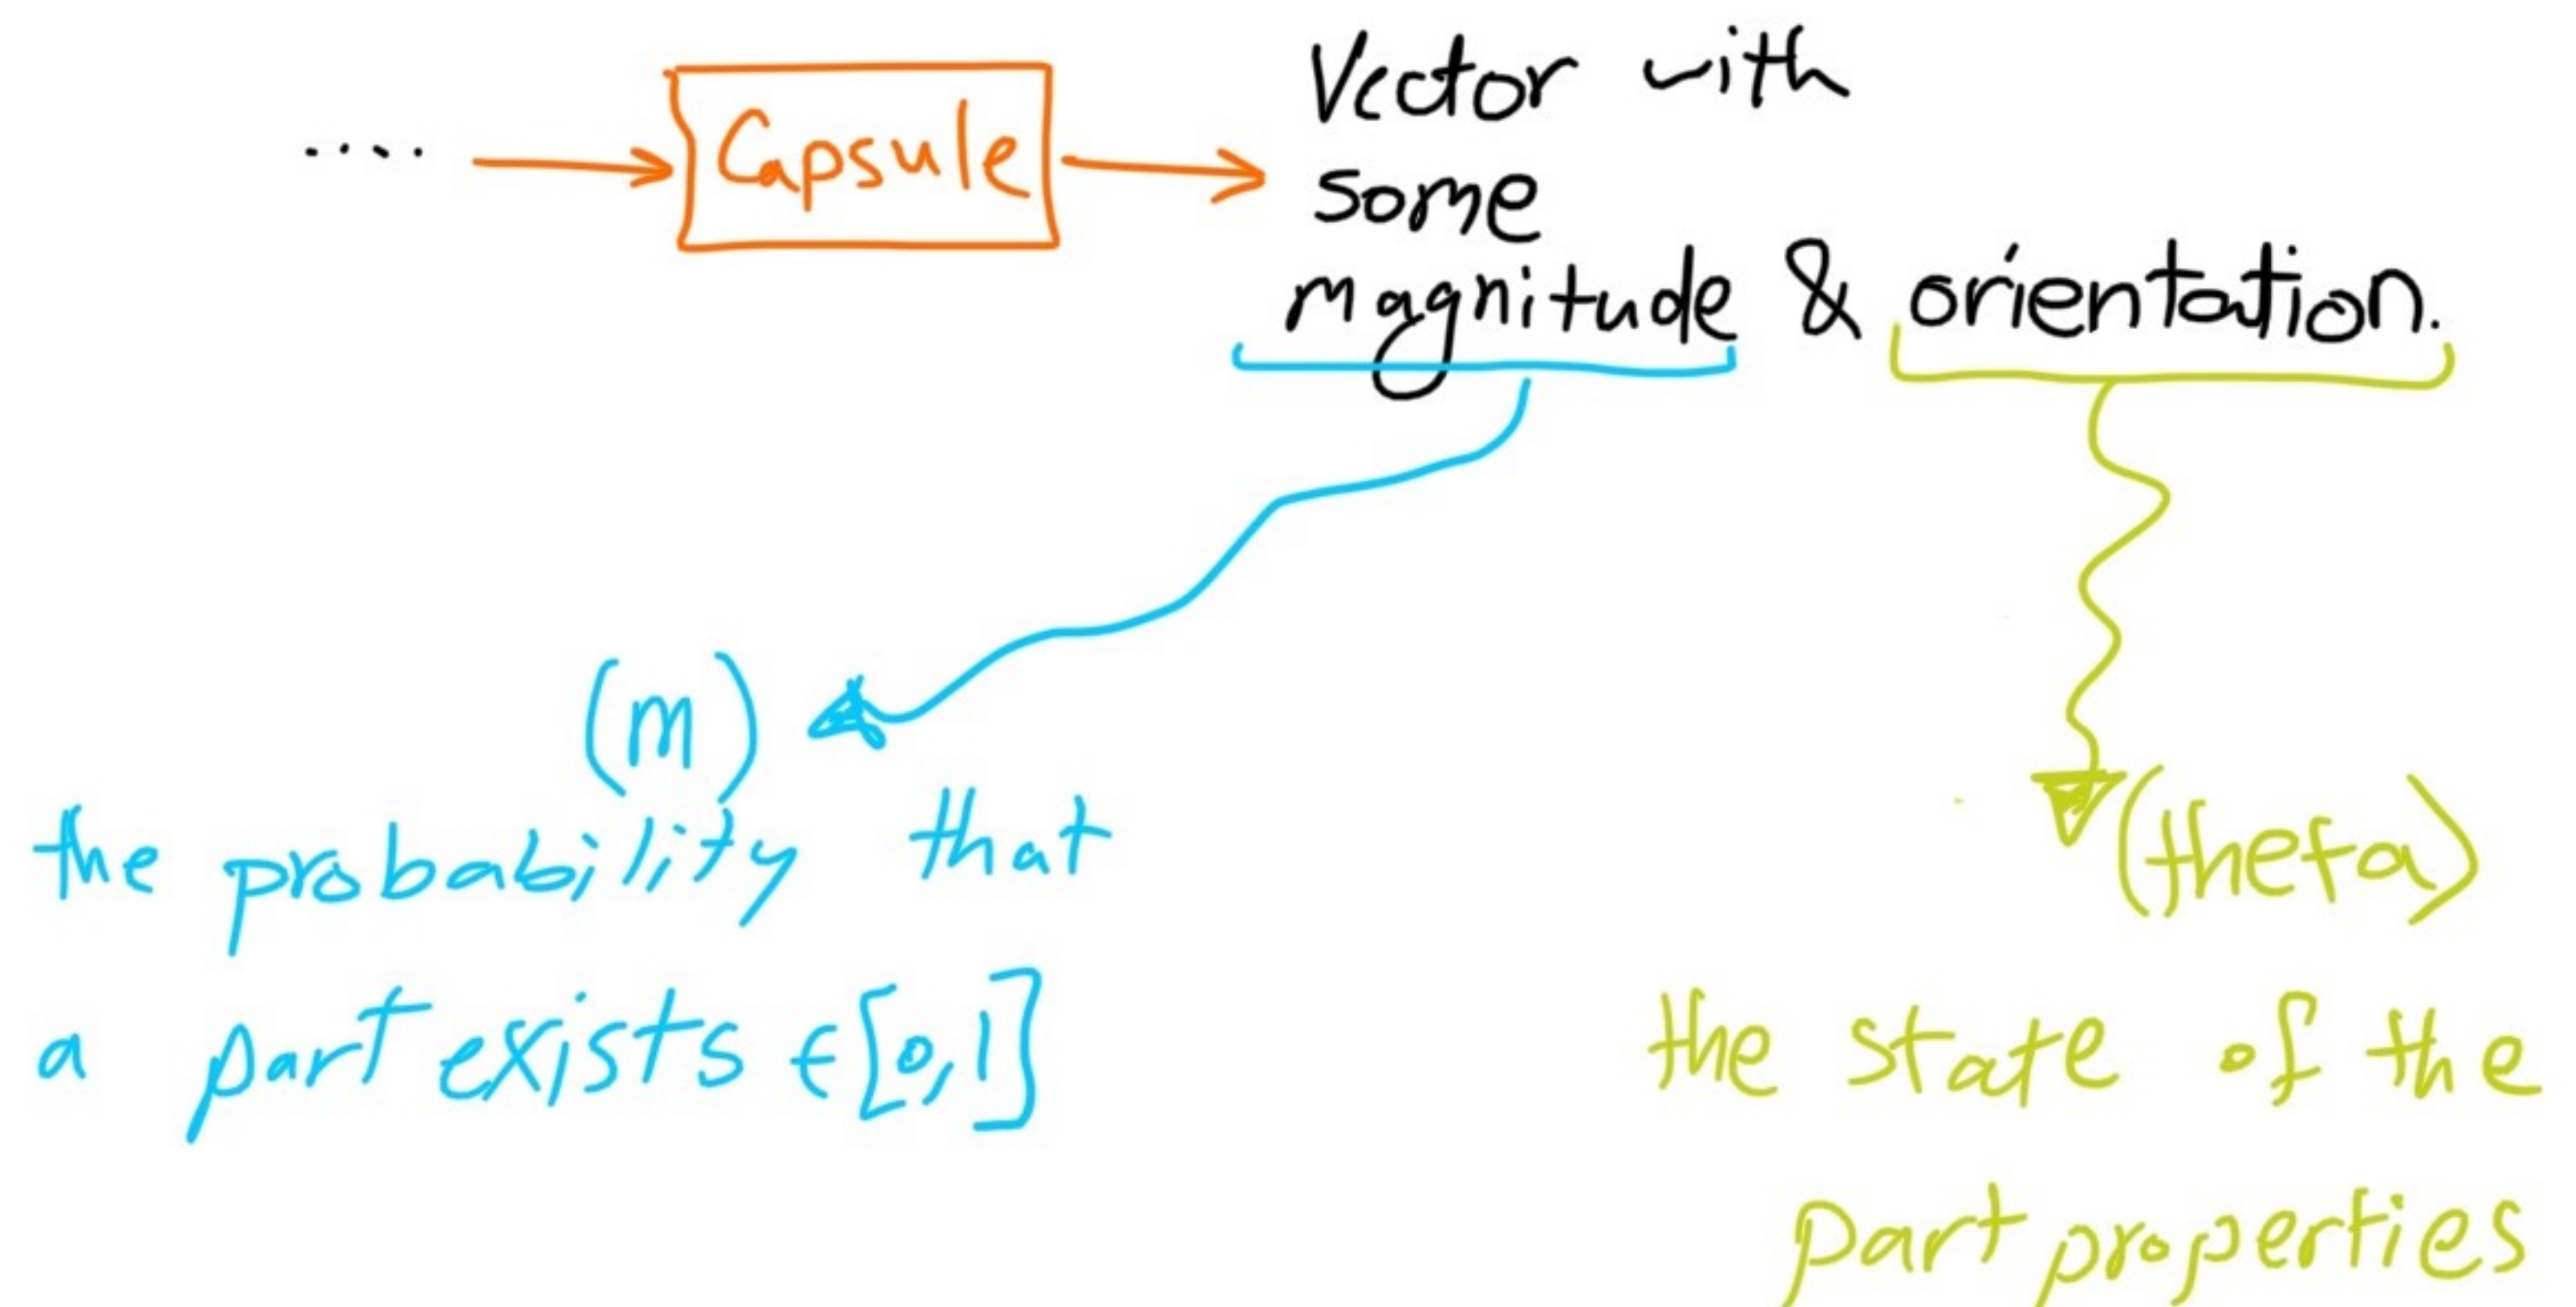 .... Capsule Vector with
some
magnitude & orientation.
(m)
the probability that
a part exists ∈[0,1]
(theta)
the state of the
part properties